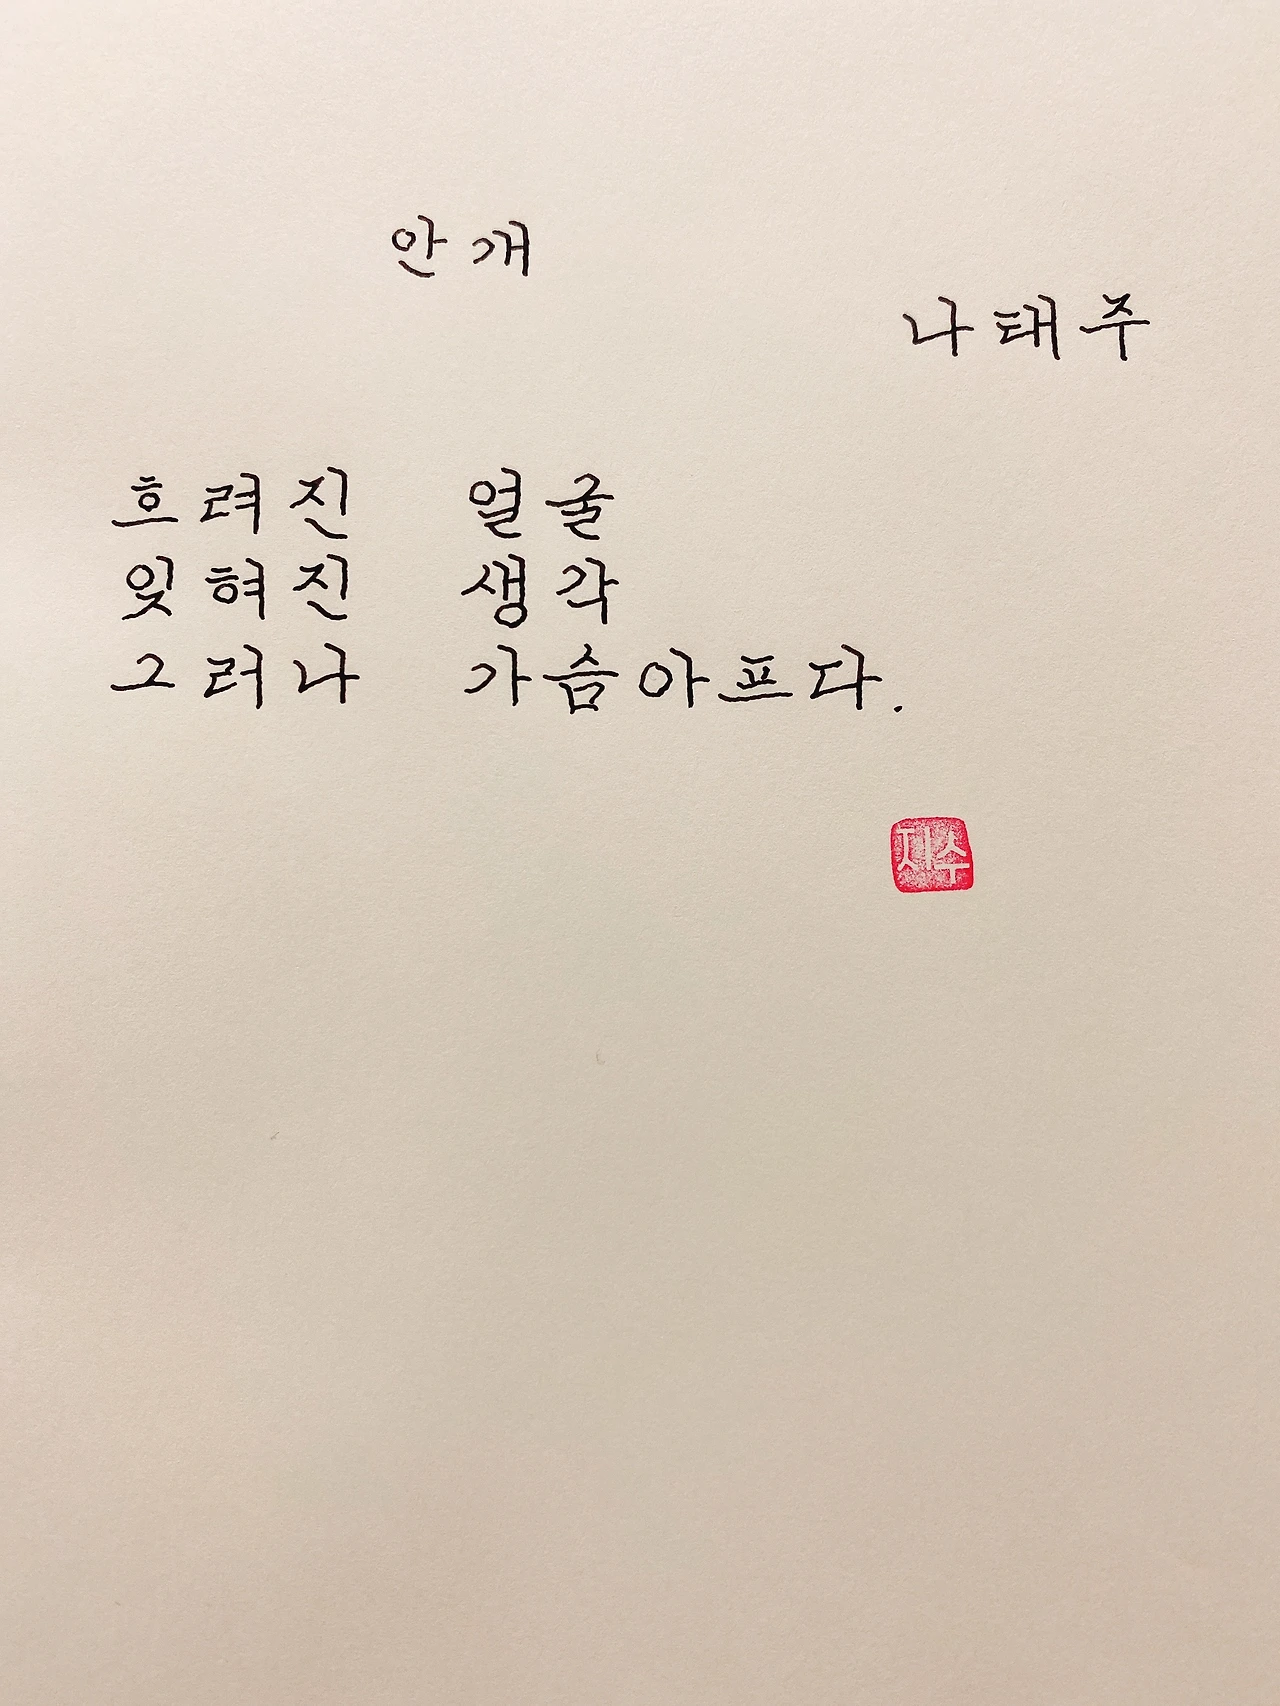 안개
나태주
흐려진 얼굴
잊혀진 생각
그러나 가슴아프다.
지수